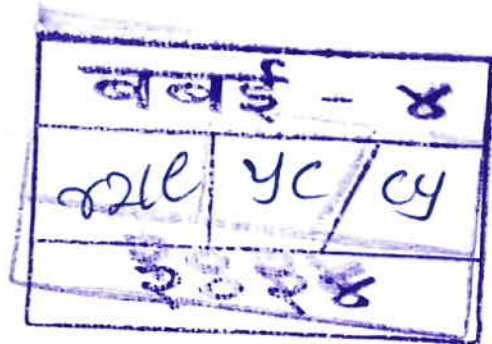 बबई - ४
५८ / ८५
२०२४